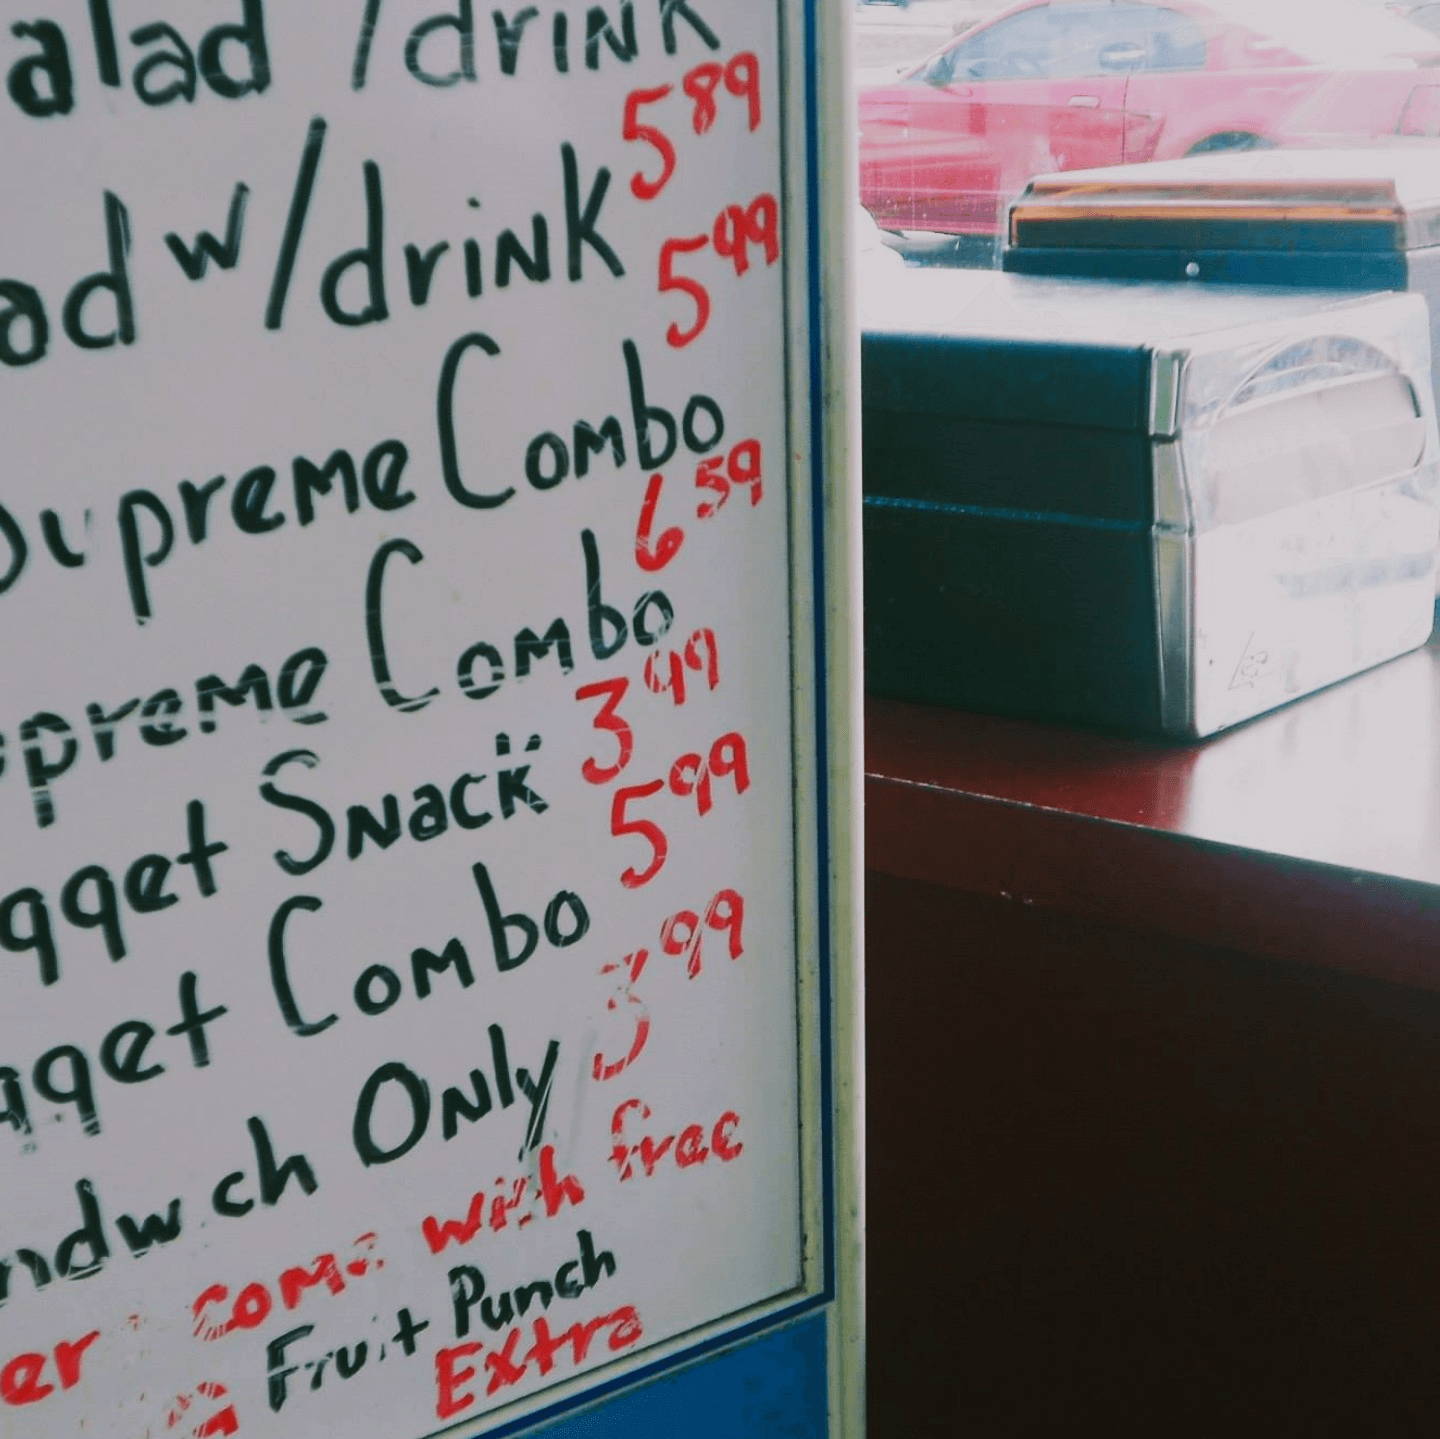 alad /drink
5.89
ad w/drink
5.99
Supreme Combo
6.59
preme Combo
3.99
gget Snack
5.99
gget Combo
3.99
ndwich Only
er come with free
Fruit Punch
Extra